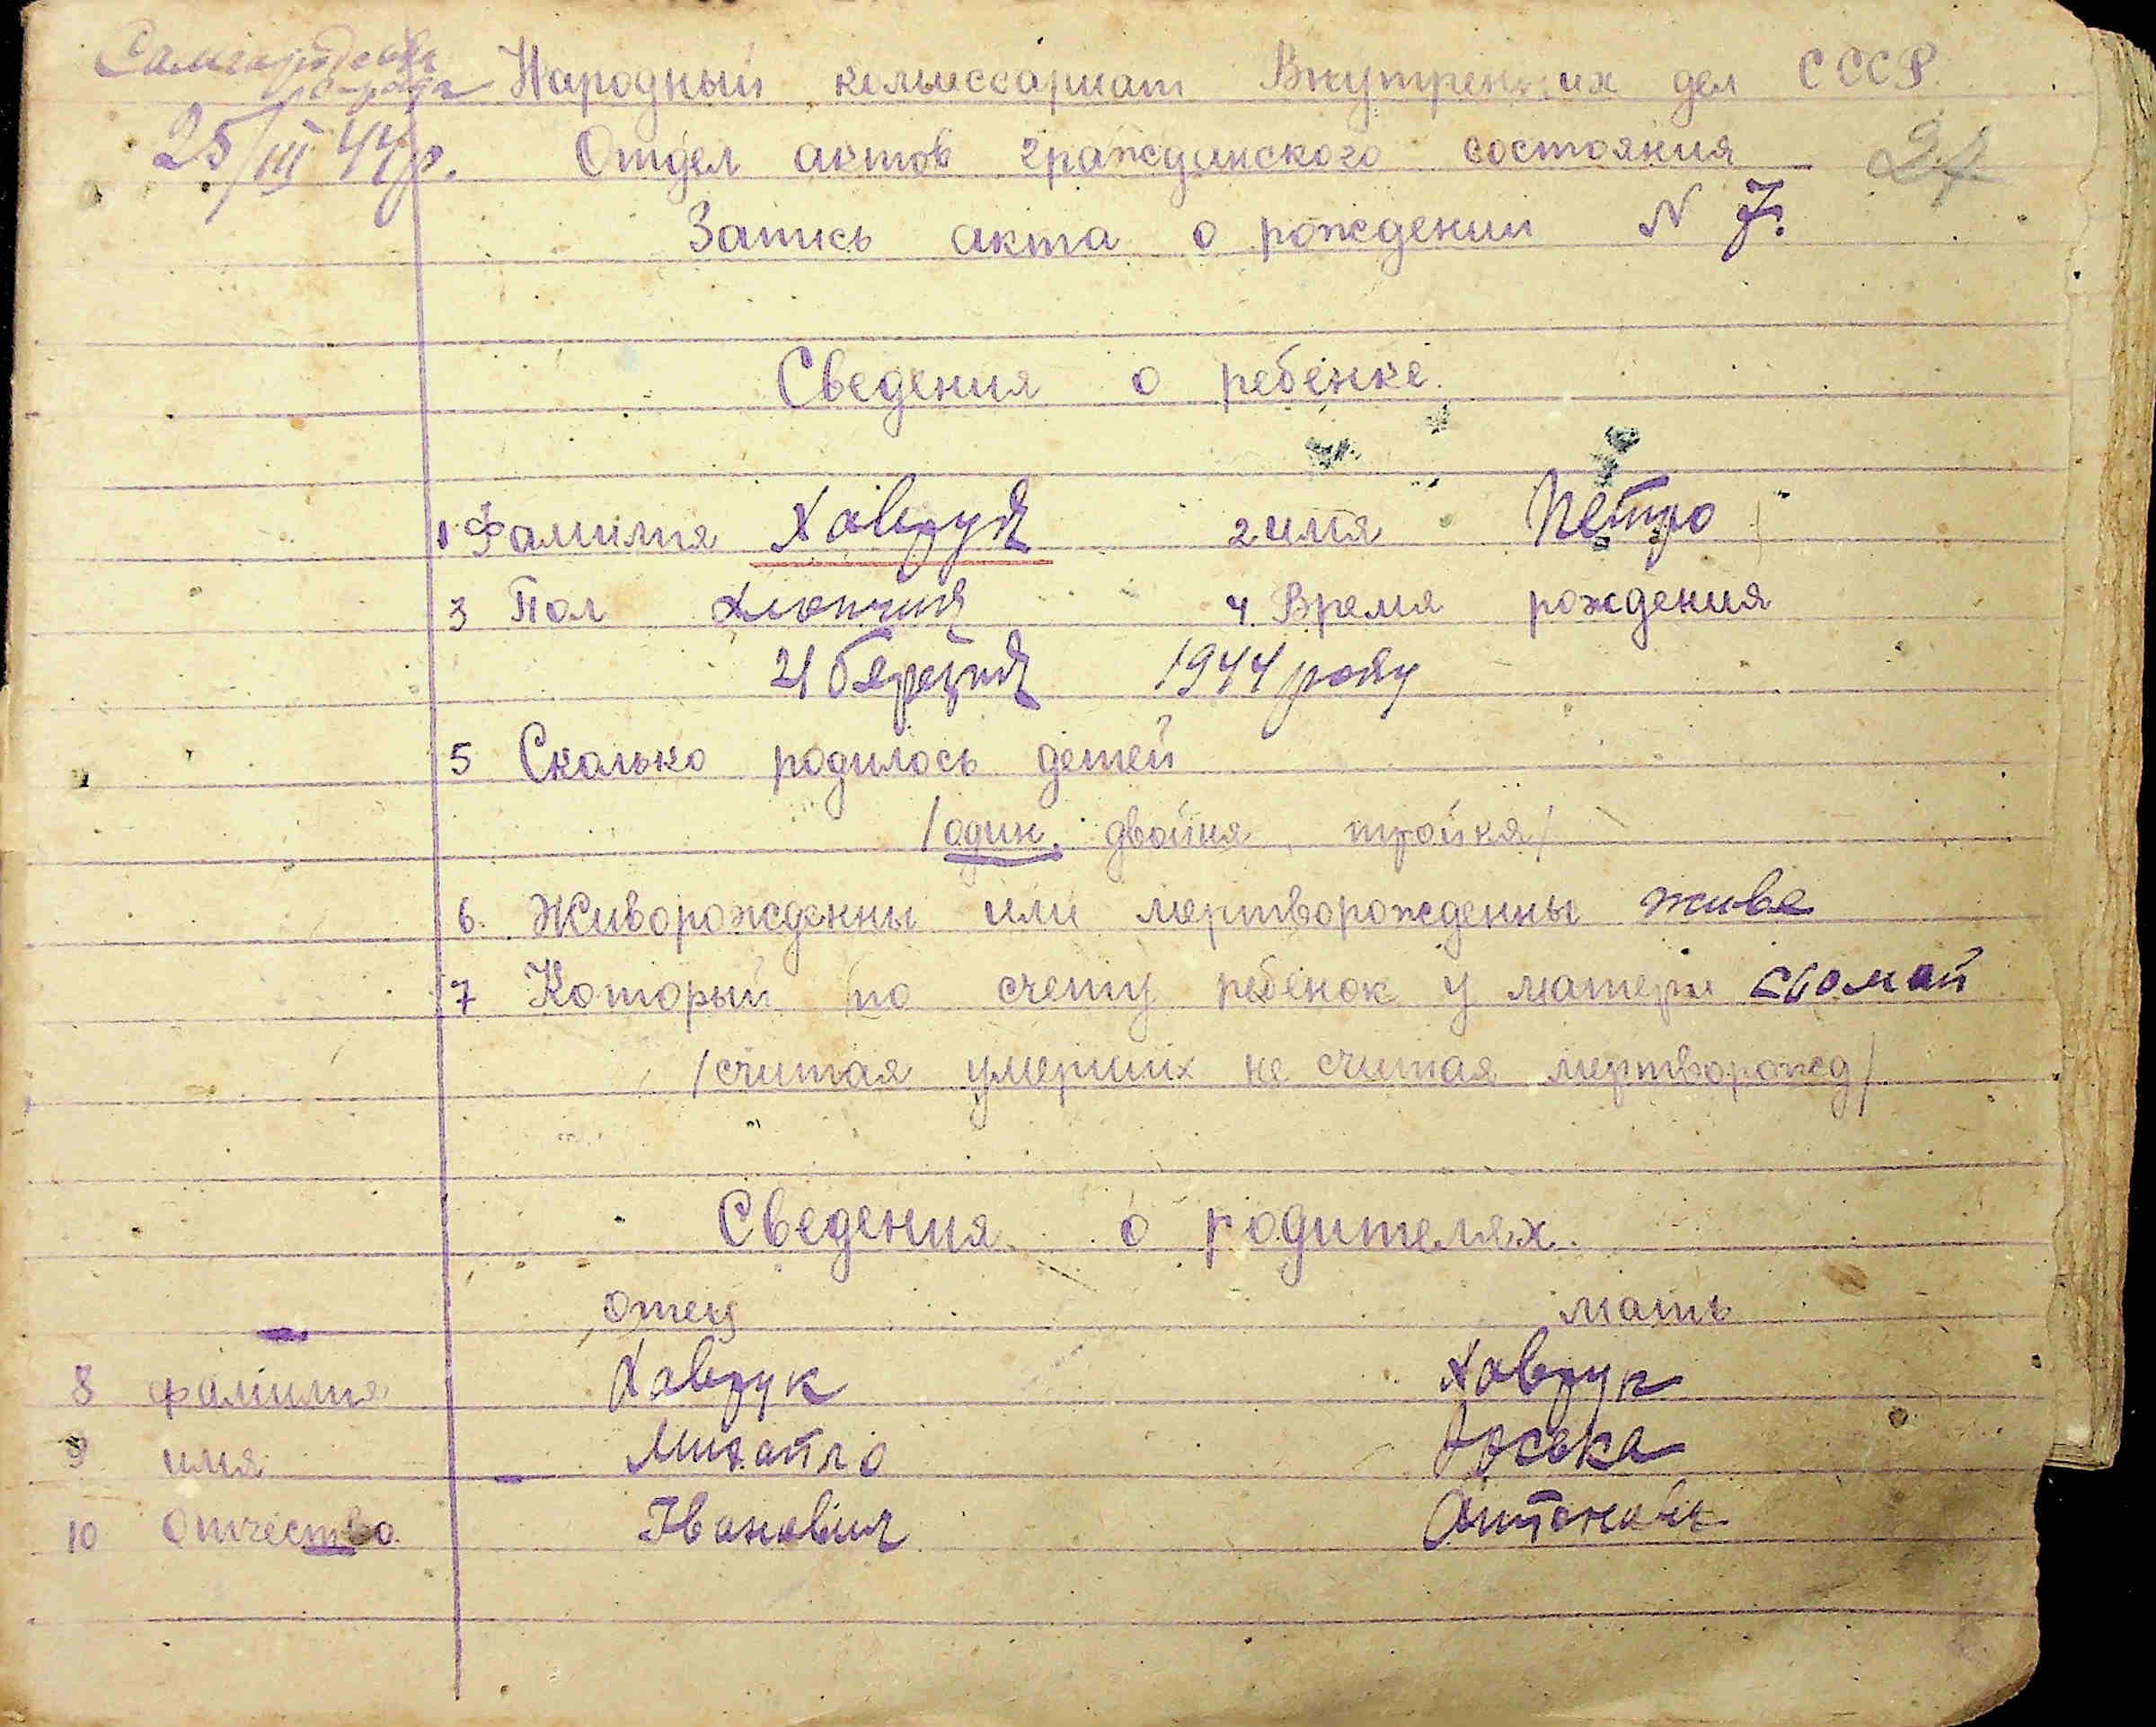 25/III 44 р.
Народный комиссариат Внутренних дел СССР.
Отдел актов гражданского состояния
Запись акта о рождении N 7.
Сведения о ребенке.
1 Фамилия Хаврук 2 имя Петро
3 Пол хлопчик 4. Время рождения
21 березня 1944 року
5 Сколько родилось детей
/один, двойня, тройня/
6. Живорожденны или мертворожденны живе
7 Который по счету ребенок у матери сьомий
/считая умерших не считая мертворожд/
Сведения о родителях.
отец мать
8 фамилия Хаврук Хаврук
9 имя Михайло
10 Отчество Іванович Антонівн